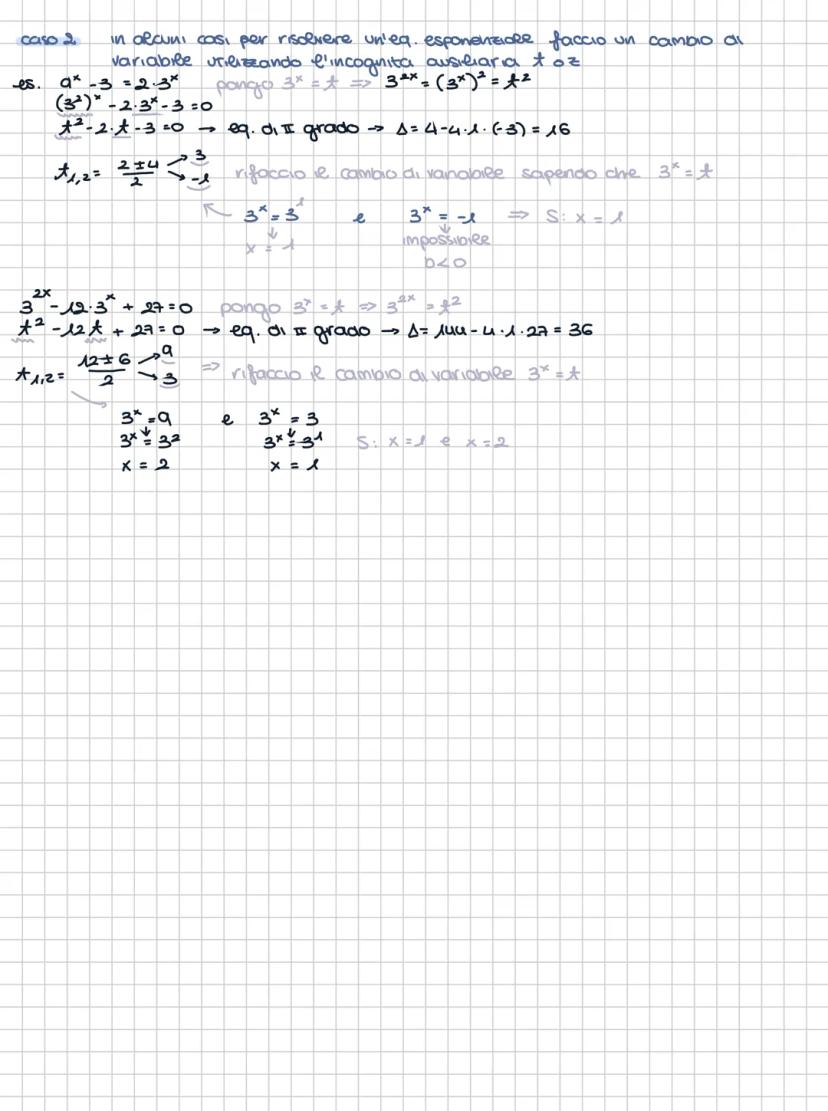 caso 2 in alcuni casi per risolvere un'eq. esponenziale faccio un cambio di
variabile utilizzando l'incognita ausiliaria t o z
es. 9ˣ - 3 = 2·3ˣ pongo 3ˣ = t => 3²ˣ = (3ˣ)² = t²
(3²)ˣ - 2·3ˣ - 3 = 0
t² - 2·t - 3 = 0 → eq. di II grado → Δ = 4 - 4·1·(-3) = 16
t₁,₂ = (2 ± 4)/2 → 3 → -1 rifaccio il cambio di variabile sapendo che 3ˣ = t
3ˣ = 3¹ e 3ˣ = -1 => S: x = 1
x = 1 impossibile
b<0
3²ˣ - 12·3ˣ + 27 = 0 pongo 3ˣ = t => 3²ˣ = t²
t² - 12t + 27 = 0 → eq. di II grado → Δ = 144 - 4·1·27 = 36
t₁,₂ = (12 ± 6)/2 → 9 → 3 => rifaccio il cambio di variabile 3ˣ = t
3ˣ = 9 e 3ˣ = 3
3ˣ = 3² 3ˣ = 3¹ S: x = 1 e x = 2
x = 2 x = 1